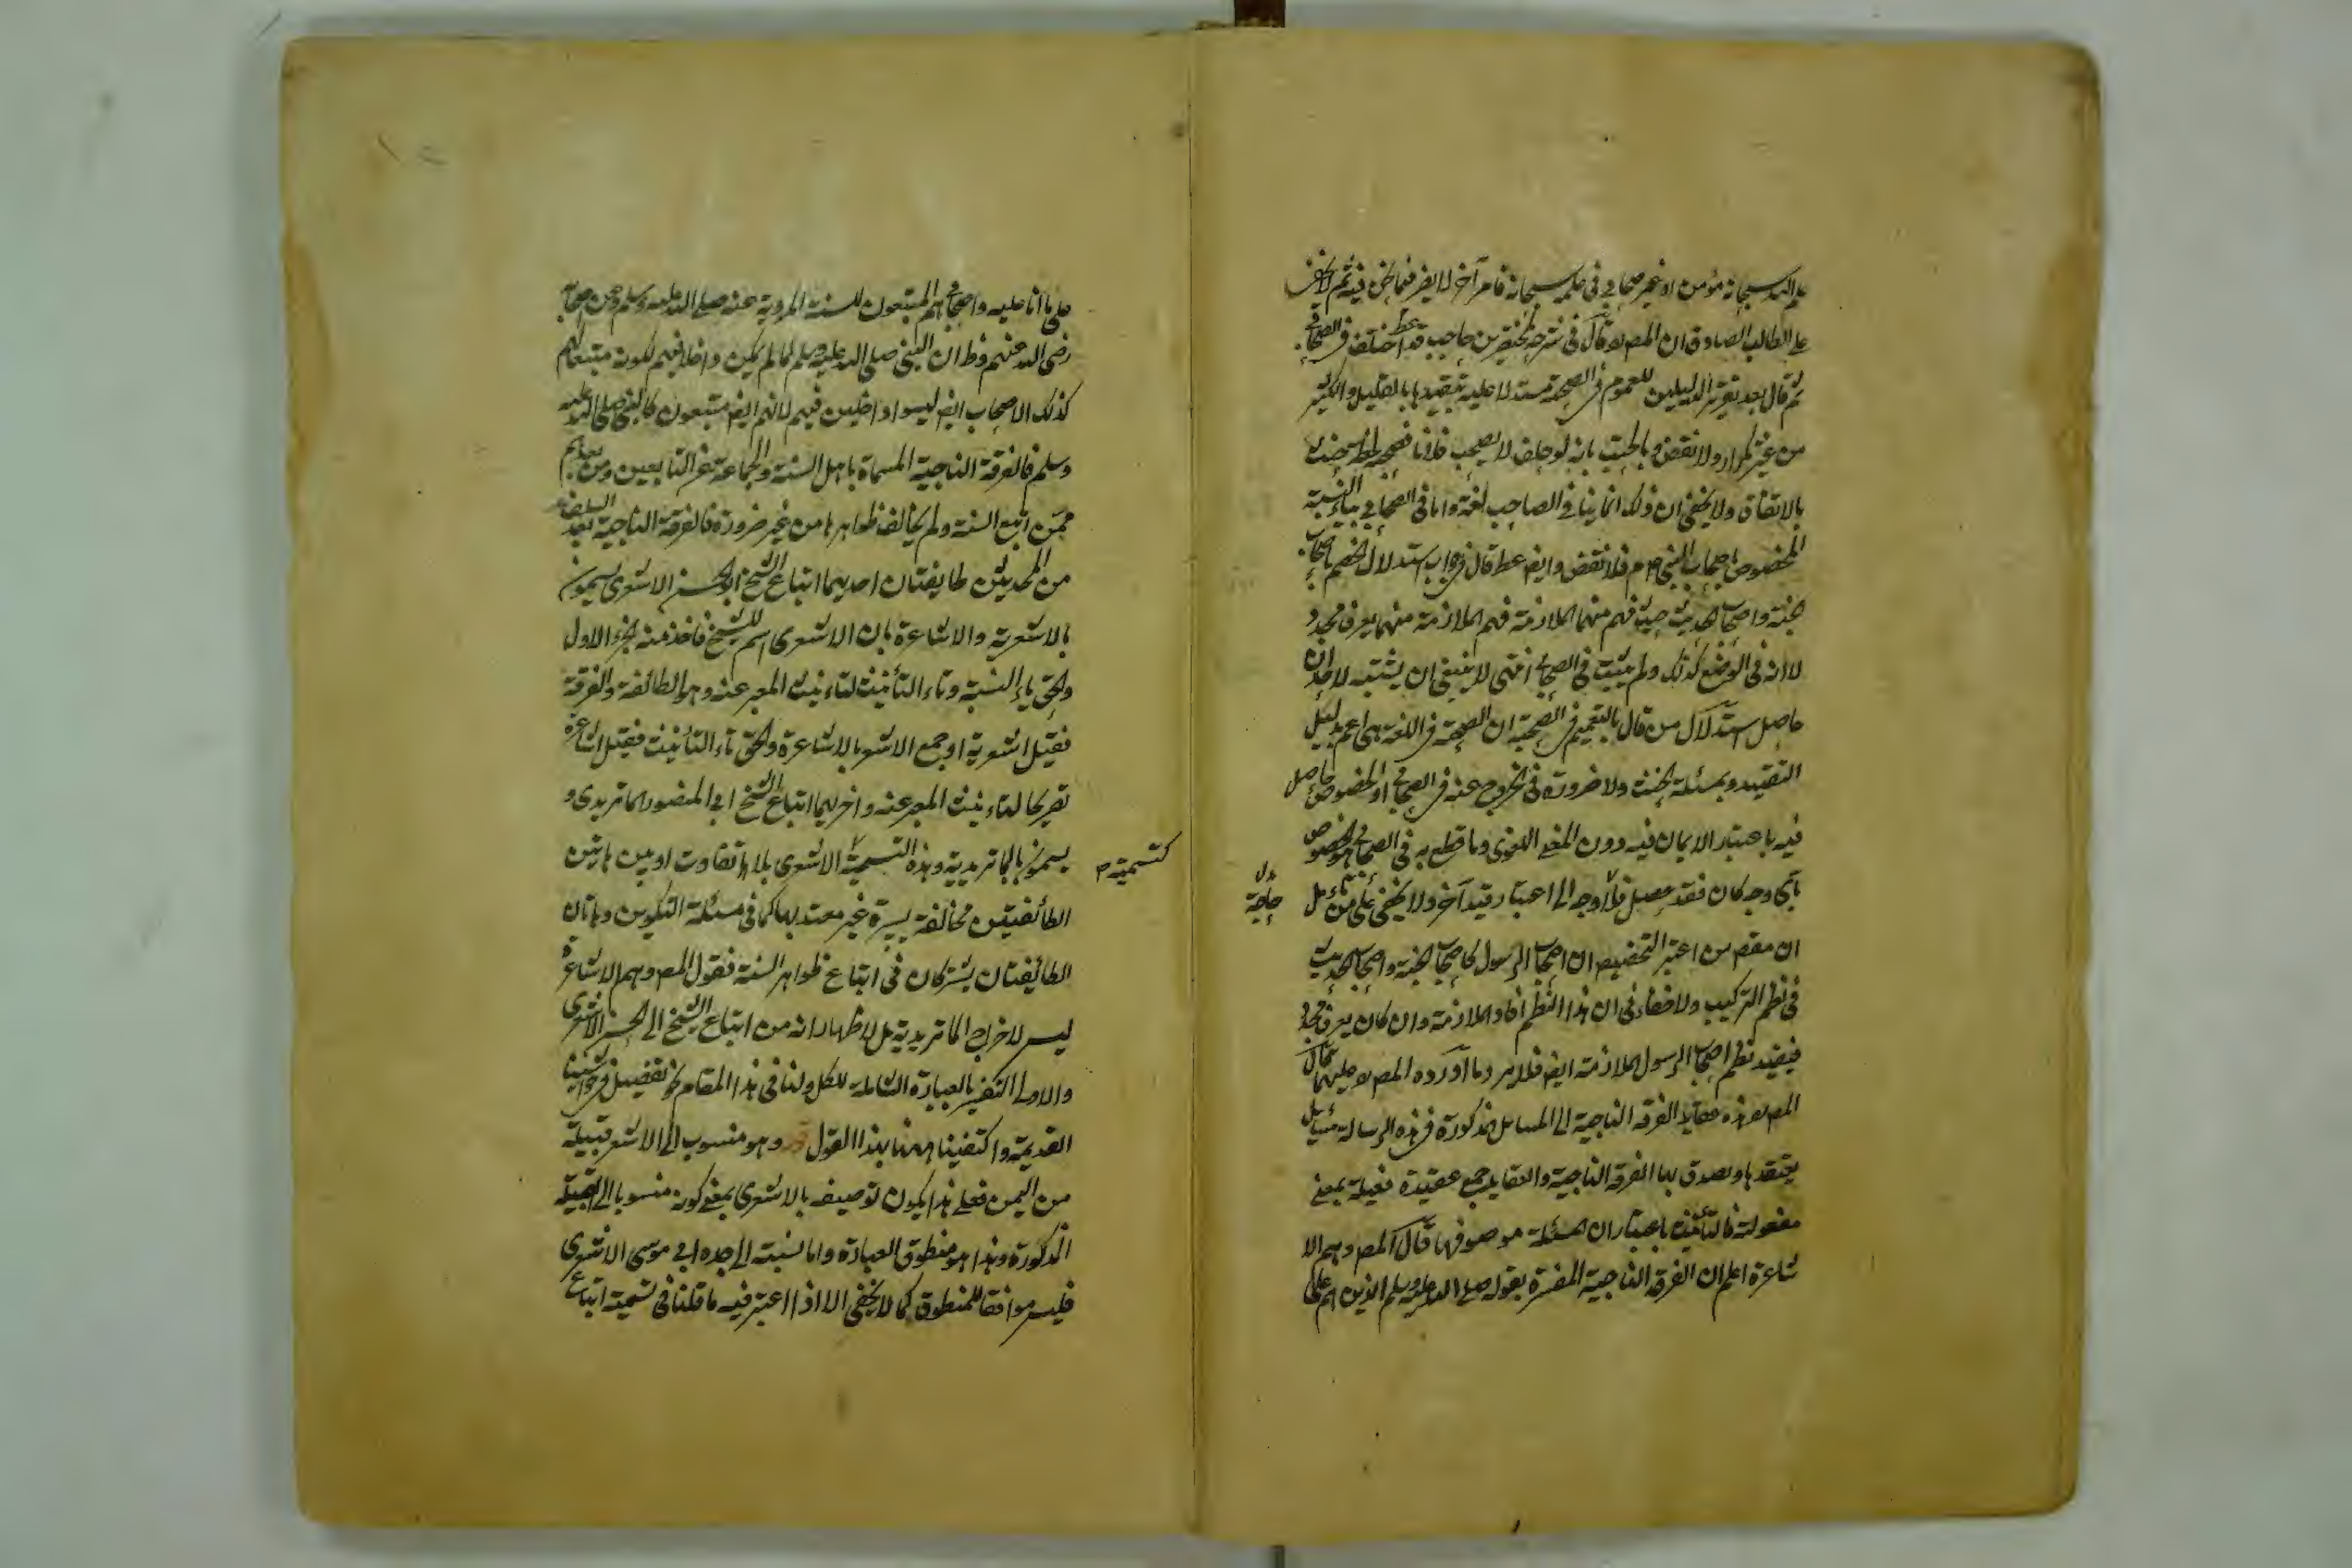 علم الله سبحانه مؤمن او غير صحابي في علمه سبحانه فامر آخر لا يضر فيما نحن فيه ثم لا يخفى
على الطالب الصادق ان المص قال في شرحه لمختصر بن حاجب قد اختلف في الصحابي
ثم قال بعد تقرير الدليلين للعموم في الصحبة مستدلا عليه بتقييدها بالقليل والكثير
من غير تكرار ولا نقض وبالحنث بانه لو حلف لا يصحب فلانا فصحبه لحظة حنث
بالاتفاق ولا يخفى ان ذلك انما يتأتى في الصاحب لغة واما في الصحابي بياء النسبة
المخصوص باصحاب النبي فلا نقض وايض قال في جواب استدلال الخصم باصحاب
الجنة واصحاب الحديث حيث فهم منهما الملازمة فهم الملازمة منهما بعرف مجدد
لا انه في الوضع كذلك ولم يثبت في الصحابي انتهى لا ينبغي ان يشتبه لاحد ان
حاصل استدلال من قال بالتعميم في الصحبة ان الصحبة في اللغة هي اعم بدليل
التقييد وبمسئلة الحنث ولا ضرورة في الخروج عنه في الصحابي او الخصوص حاصل
فيه باعتبار الايمان فيه دون المعنى اللغوي وما قطع به في الصحابي هو الخصوص
بأي وجه كان فقد حصل فلا وجه الى اعتبار قيد آخر ولا يخفى على من تأمل
حاجة
ان مقصد من اعتبر التخصيص ان اصحاب الرسول كاصحاب الجنة واصحاب الحديث
في نظم التركيب ولا خفاء في ان هذا النظم افاد الملازمة وان كان بعرف مجدد
فيفيد نظم اصحاب الرسول الملازمة ايض فلا يرد ما اورده المص عليهما قال
المص هذه عقايد الفرقة الناجية الى المسائل المذكورة في هذه الرسالة مسائل
يعتقدها ويصدق بها الفرقة الناجية والعقايد جمع عقيدة فعيلة بمعنى
مفعولة فالتأنيث باعتبار ان المسئلة موصوفها قال المص وهم الا
شاعرة اعلم ان الفرقة الناجية المفسرة بقوله صلى الله عليه وسلم الذين هم على
على ما انا عليه واصحابي هم المتبعون للسنة المروية عنه صلى الله عليه وسلم وعن اصحابه
رضي الله عنهم وظ ان النبي صلى الله عليه وسلم لما لم يكن داخلا فيهم لكونه متبعا لهم
كذلك الاصحاب ايض ليسوا داخلين فيهم لانهم ايض متبعون كالنبي صلى الله عليه
وسلم فالفرقة الناجية المسماة باهل السنة والجماعة غير التابعين ومن بعدهم
ممن اتبع السنة ولم يخالف ظواهرها من غير ضرورة فالفرقة الناجية بعد السلف
من المحدثين طايفتان احديهما اتباع الشيخ ابو الحسن الاشعري يسمون
بالاشعرية والاشاعرة بان الاشعري اسم للشيخ فاخذ منه الجزء الاول
والحق ياء النسبة وتاء التأنيث لتاءنيث المعبر عنه وهو الطائفة والفرقة
فقيل اشعرية او جمع الاشعر بالاشاعرة والحق تاء التأنيث فقيل اشاعرة
تصريحا لتاءنيث المعبر عنه واخريهما اتباع الشيخ ابي المنصور الماتريدي و
يسمون بالماتريدية وهذه التسمية الاشعري بلا تفاوت او بين هاتين
كتسمية
الطائفتين مخالفة يسيرة غير معتد بها كما في مسئلة التكوين وهاتان
الطائفتان يشتركان في اتباع ظواهر السنة فقول المص وهم الاشاعرة
ليس لاخراج الماتريدية بل لاظهار انه من اتباع الشيخ الى الحسن الاشعري
والاولى التعبير بالعبارة الشاملة للكل ولنا في هذا المقام نحو تفصيل في حواشينا
القديمة واكتفينا ههنا بهذا القول قوله وهو منسوب الى الاشعر قبيلة
من اليمن فعلى هذا يكون توصيفه بالاشعري بمعنى كونه منسوبا الى القبيلة
المذكورة وهذا هو منطوق العبارة واما نسبته الى جده ابي موسى الاشعري
فليس موافقا للمنطوق كما لا يخفى الا اذا اعتبر فيه ما قلنا في تسمية اتباع